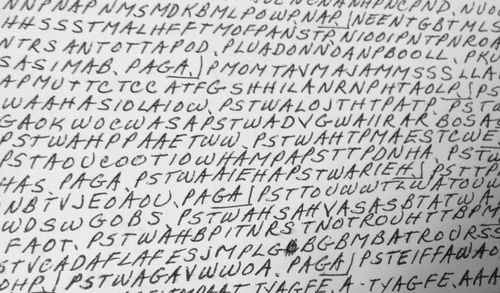 NNPNAPNMSMDKBMLPOWPNAP.|NEENTGBTMLS
HHSSSSTMALHFFTMOFPANSTP.NIOOIPNTPNROO
NTRSANTOTTAPOD. PLUADONNOANPBOOLL. PKU
SASIMAB. PAGA.|PMOMTAVMAJAMMSSSLLA
APMUTTCTCC ATFGSHHILANRNPHTAOLP.|PS
WAAHASIOLAIOW. PSTWALOJTHTPATP. PST
GAOKWOCWASAPSTWADVGWAIIRAR BOSAS
PSTWAHPPAAETWW. PSTWAHTPMAESTCWE
PSTAOUCOOTIOWHAMPAPSTTPDNHA. PSTW
HAS. PAGA. PSTWAAIEHAPSTWARIEH.|PSTTP
NBTVJEOAOU. PAGA|PSTTOUWWTLWATOUW
WDSWGOBS. PSTWAHSAHVASASBTATWA
FAOT. PSTWAHBPITNRSTNOTROUHTTBPM
STVCADAFLAFESJMPLG BGBMBATROURSS
DHP|PSTWAGAVWWOA. PAGA|PSTEIFFAWAO